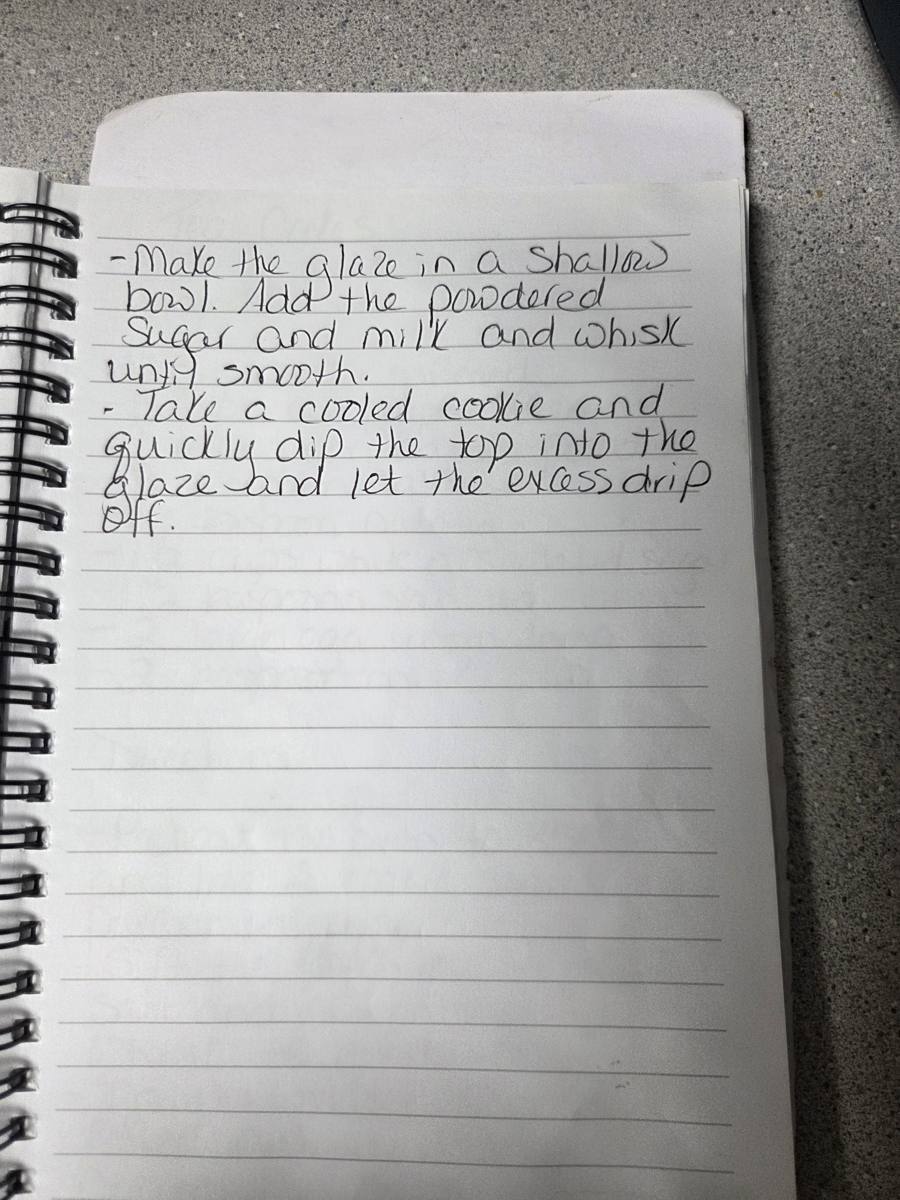 - Make the glaze in a shallow
bowl. Add the powdered
Sugar and milk and whisk
until smooth.
- Take a cooled cookie and
quickly dip the top into the
glaze and let the excess drip
off.